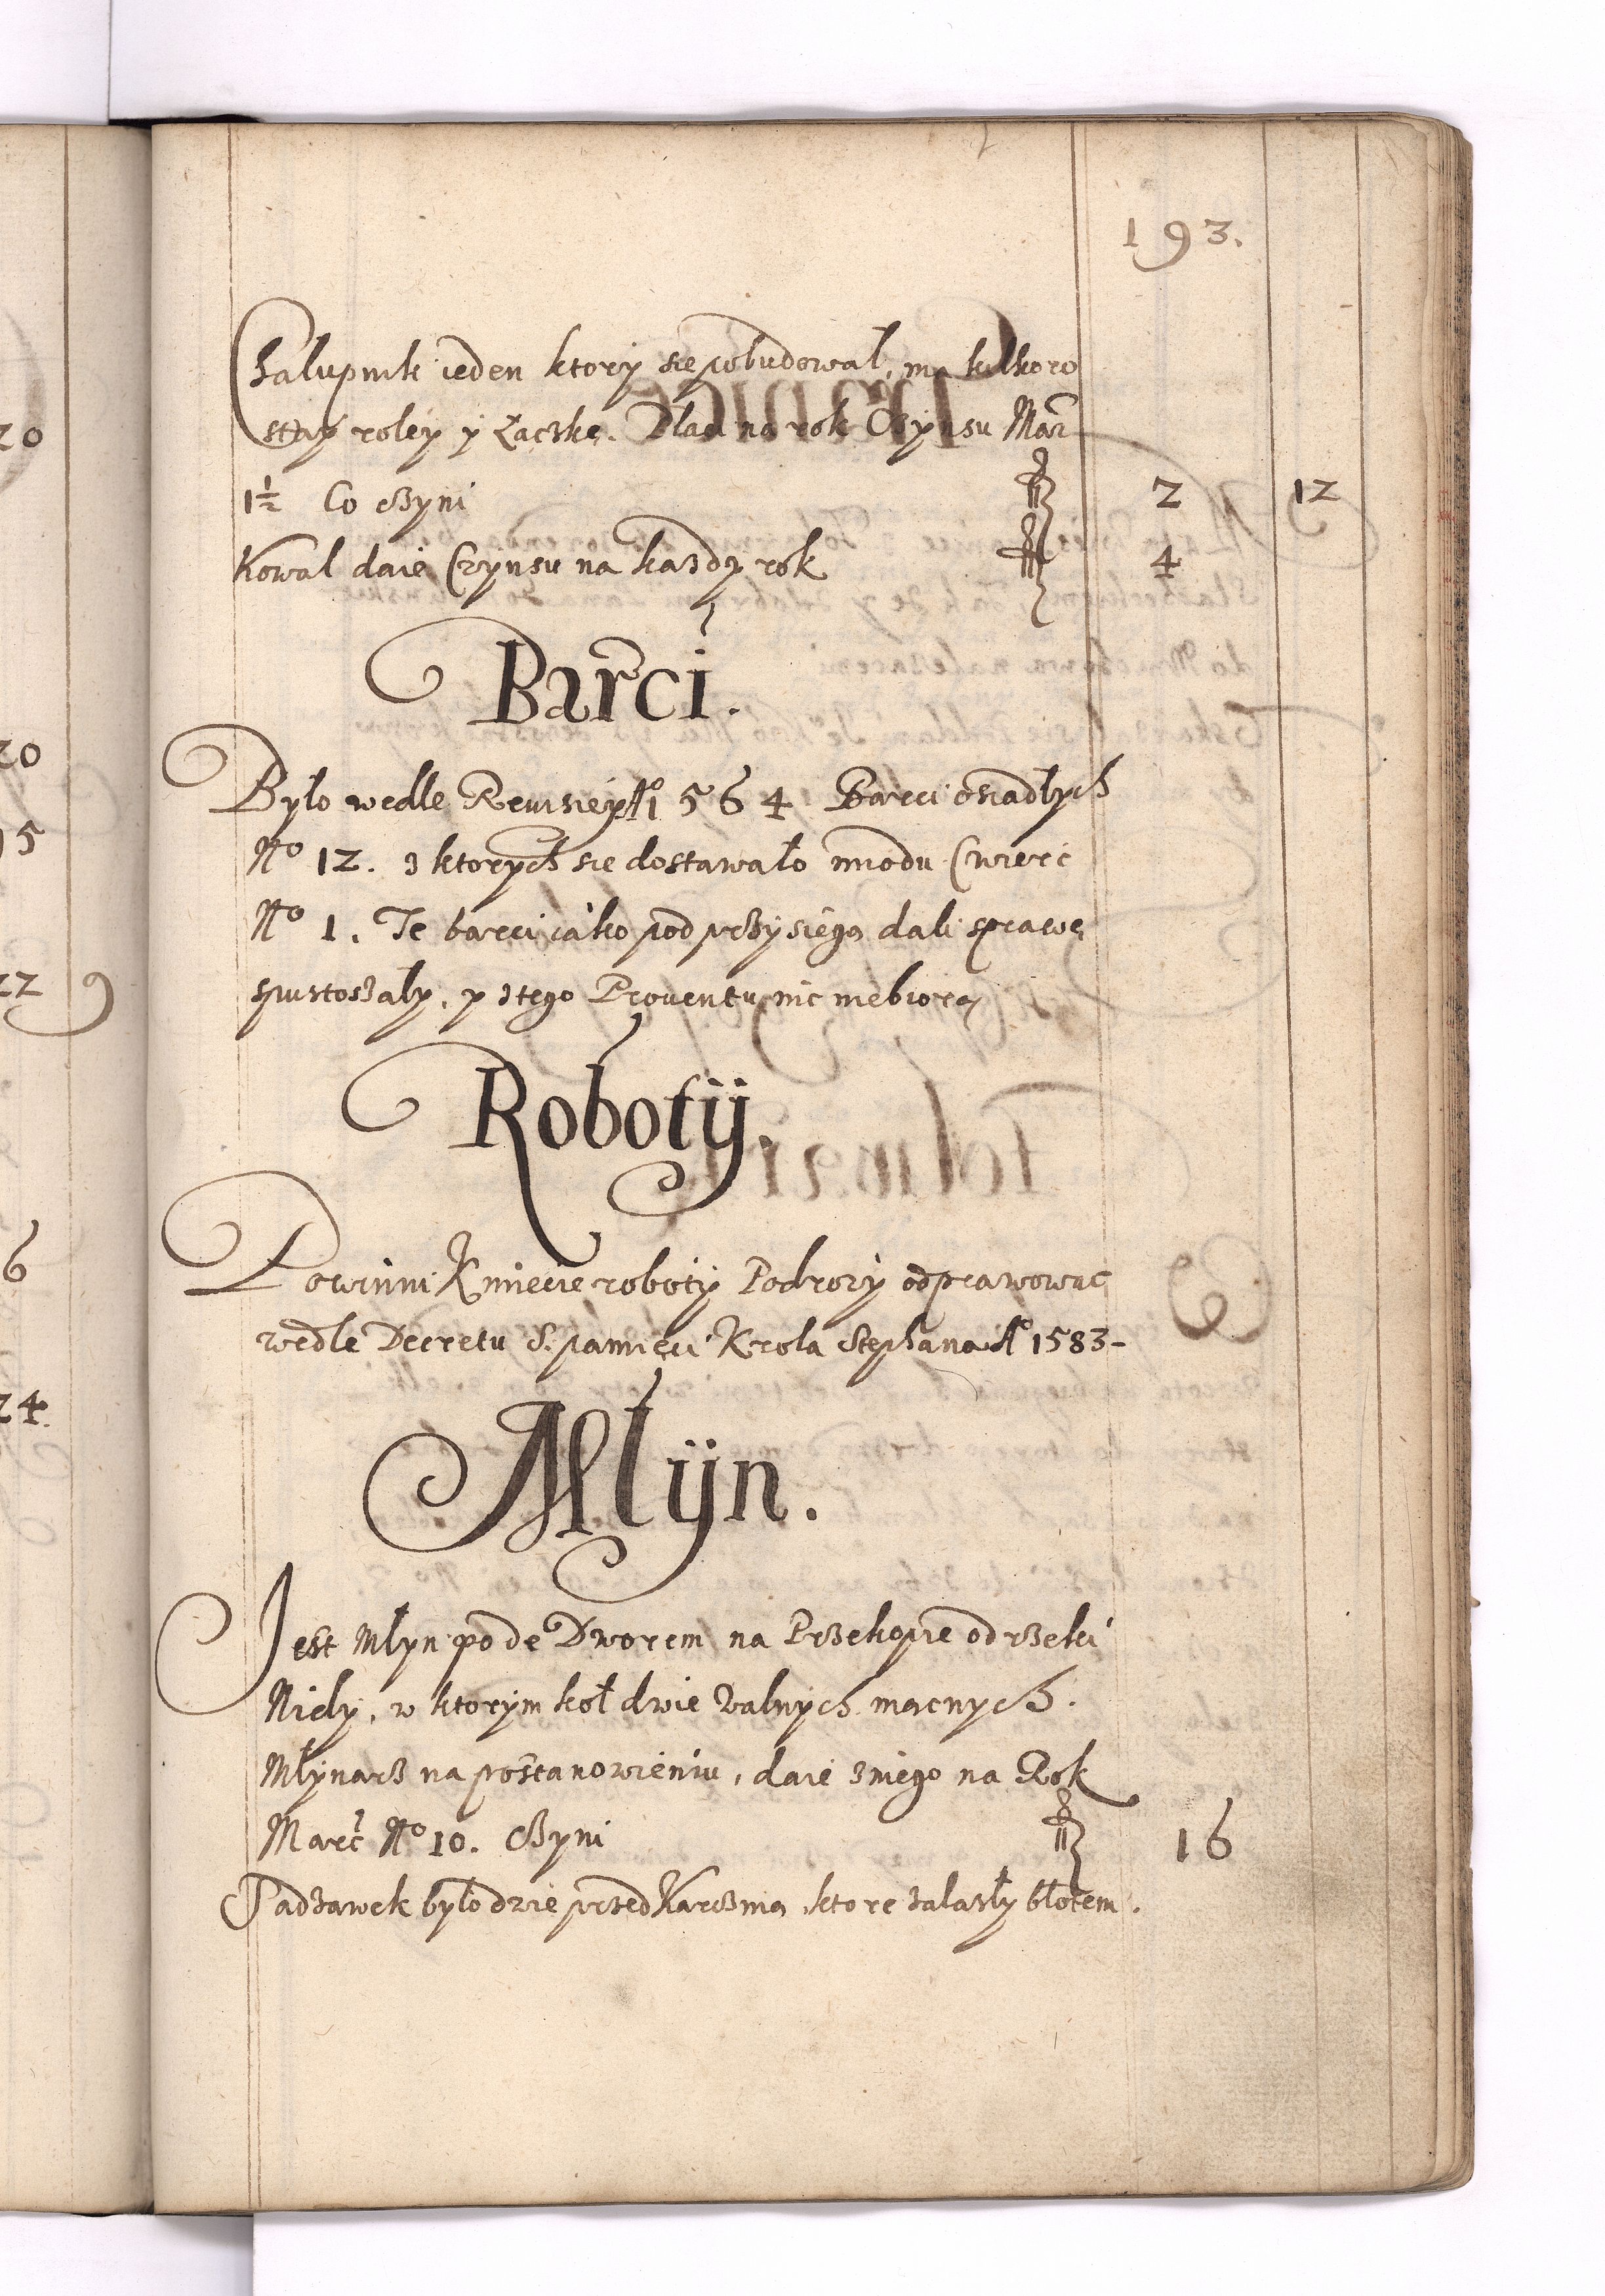 193.
Chalupnik ieden ktory sie pobudował, ma kilkoro
stay roley y Łączkę. Dla na rok Czynsu Mar
1½ Co czyni 2 12
Kowal daie Czynsu na każdy rok 4
Barci.
Było wedle Rewisiey Aº 1564 Barci osiadłych
Nº 12. z ktorych sie dostawało miodu Cwierc
Nº 1. Te barci iáko pod przysięgą dali sprawę
spustoszały, y z tego Prouentu nic niebiorą
Robotÿ.
Powinni Kmiecie roboty Podrozy odprawowac
wedle Decretu S. pamięci Krola Stephana Aº 1583-
Młÿn.
Jest Młyn pode Dworem na Przekopie od rzeki
Nidy, w ktorym koł dwie walnych mącnych.
Młynarz na postanowieniu, daie z niego na Rok
Marc Nº 10. czyni 16
Sadzawek było dzie przed Karczmą, ktore zalazły błotem.
20
20
15
22 9
6
24.